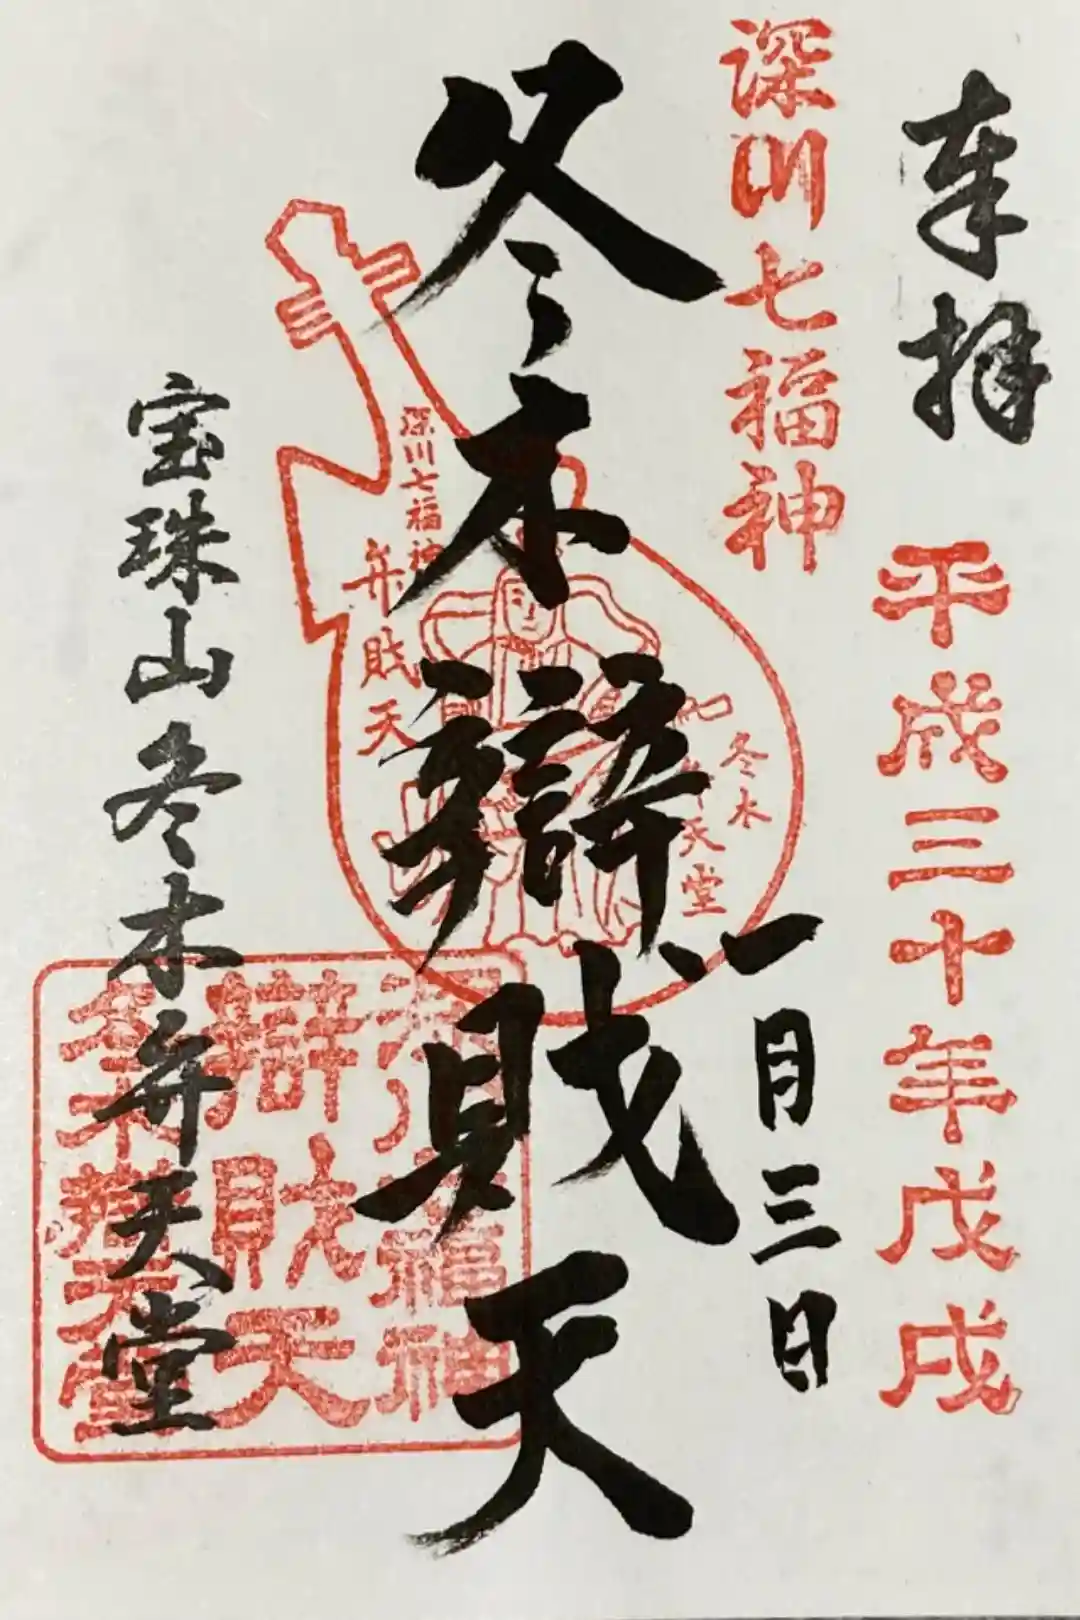 奉拝
平成三十年戊戌
一月三日
深川七福神
冬木辯財天
深川七福神
弁財天
冬木
弁天堂
宝珠山冬木弁天堂
深川七福神
辯財天
冬木辯天堂